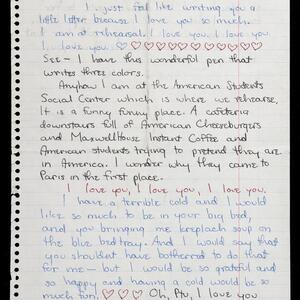 I just feel like writing you a
little letter because I love you so much.
I am at rehearsal. I love you. I love you.
I love you. ♡♡♡♡♡♡♡♡♡♡♡♡
See – I have this wonderful pen that
writes three colors.
Anyhow I am at the American Students
Social Center which is where we rehearse.
It is a funny funny place. A cafeteria
downstairs full of American Cheeseburgers
and Maxwell House Instant Coffee and
American students trying to pretend they are
in America. I wonder why they came to
Paris in the first place.
I love you, I love you, I love you.
I have a terrible cold and I would
like so much to be in your big bed,
and you bringing me kreplach soup on
the blue bedtray. And I would say that
you shouldnt have bothered to do that
for me – but I would be so grateful and
so happy and having a cold would be so
much fun. ♡♡♡ Oh, I love you